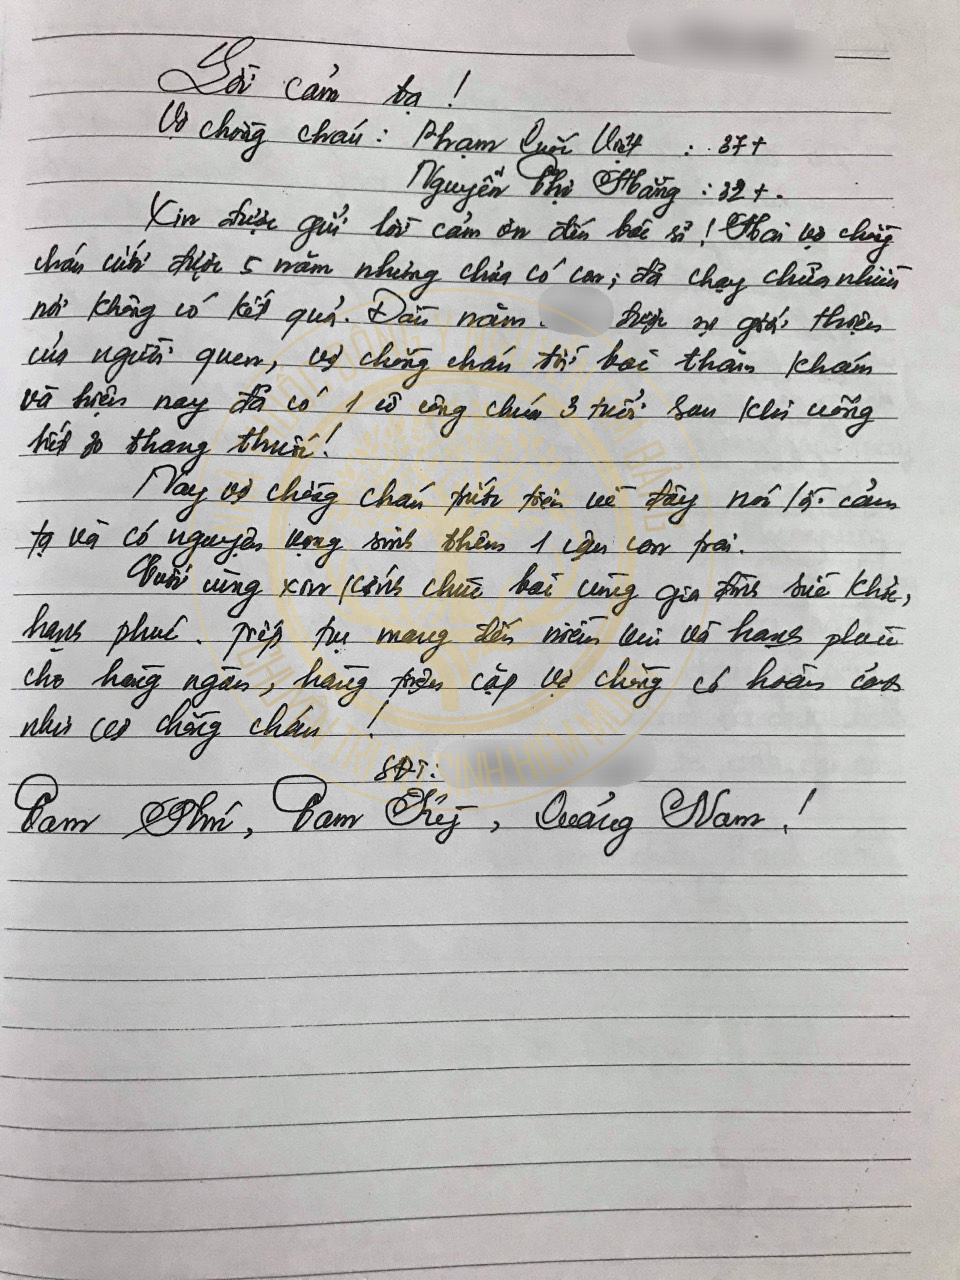 Lời cảm tạ!
Vợ chồng cháu: Phạm Quốc Việt : 37t
Nguyễn Thị Hằng : 32t.
Xin được gửi lời cảm ơn đến bác sĩ! Hai vợ chồng
cháu cưới được 5 năm nhưng chưa có con; đã chạy chữa nhiều
nơi không có kết quả. Đầu năm. được sự giới thiệu
của người quen, vợ chồng cháu tới bác thăm khám
và hiện nay đã có 1 cô công chúa 3 tuổi sau khi uống
hết 30 thang thuốc!
Nay vợ chồng cháu trước tiên về đây nói lời cảm
tạ và có nguyện vọng sinh thêm 1 cậu con trai.
Cuối cùng xin kính chúc bác cùng gia đình sức khỏe,
hạnh phúc. Tiếp tục mang đến niềm vui và hạnh phúc
cho hàng ngàn, hàng triệu cặp vợ chồng có hoàn cảnh
như vợ chồng cháu!
SĐT:
Tam Phú, Tam Kỳ, Quảng Nam!